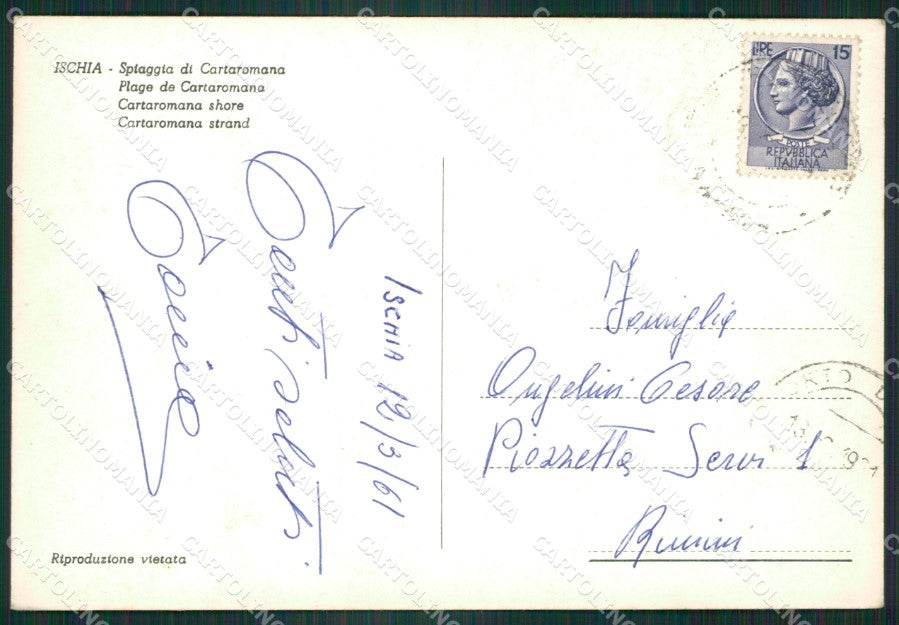 ISCHIA - Spiaggia di Cartaromana
Plage de Cartaromana
Cartaromana shore
Cartaromana strand
LIRE 15
POSTE
REPVBBLICA
ITALIANA
Ischia 12/3/61
saluti
Famiglia
Angelini Cesare
Piazzetta Servi 1
Rimini
Riproduzione vietata
CARTOLINOMANIA